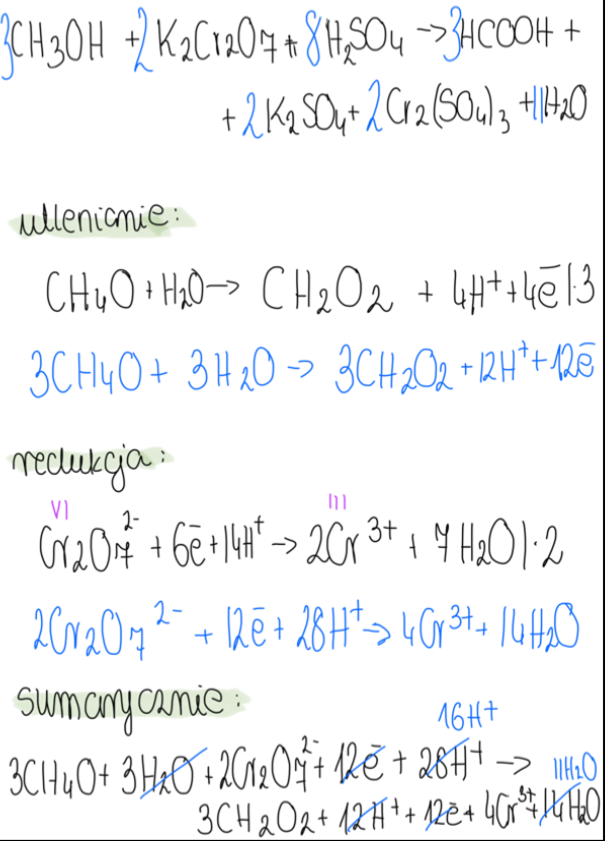 3CH3OH + 2K2Cr2O7 + 8H2SO4 → 3HCOOH +
+ 2K2SO4 + 2Cr2(SO4)3 + 11H2O
utlenianie:
CH4O + H2O → CH2O2 + 4H⁺ + 4ē |·3
3CH4O + 3H2O → 3CH2O2 + 12H⁺ + 12ē
redukcja:
VI III
Cr2O7²⁻ + 6ē + 14H⁺ → 2Cr³⁺ + 7H2O |·2
2Cr2O7²⁻ + 12ē + 28H⁺ → 4Cr³⁺ + 14H2O
sumarycznie:
16H⁺
3CH4O + 3H2O + 2Cr2O7²⁻ + 12ē + 28H⁺ → 11H2O
3CH2O2 + 12H⁺ + 12ē + 4Cr³⁺ + 14H2O